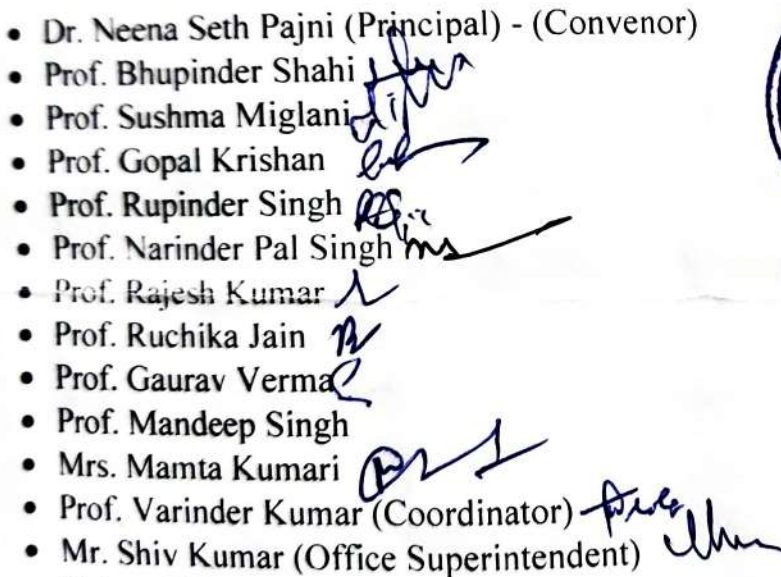 • Dr. Neena Seth Pajni (Principal) - (Convenor)
• Prof. Bhupinder Shahi
• Prof. Sushma Miglani
• Prof. Gopal Krishan
• Prof. Rupinder Singh
• Prof. Narinder Pal Singh
• Prof. Rajesh Kumar
• Prof. Ruchika Jain
• Prof. Gaurav Verma
• Prof. Mandeep Singh
• Mrs. Mamta Kumari
• Prof. Varinder Kumar (Coordinator)
• Mr. Shiv Kumar (Office Superintendent)